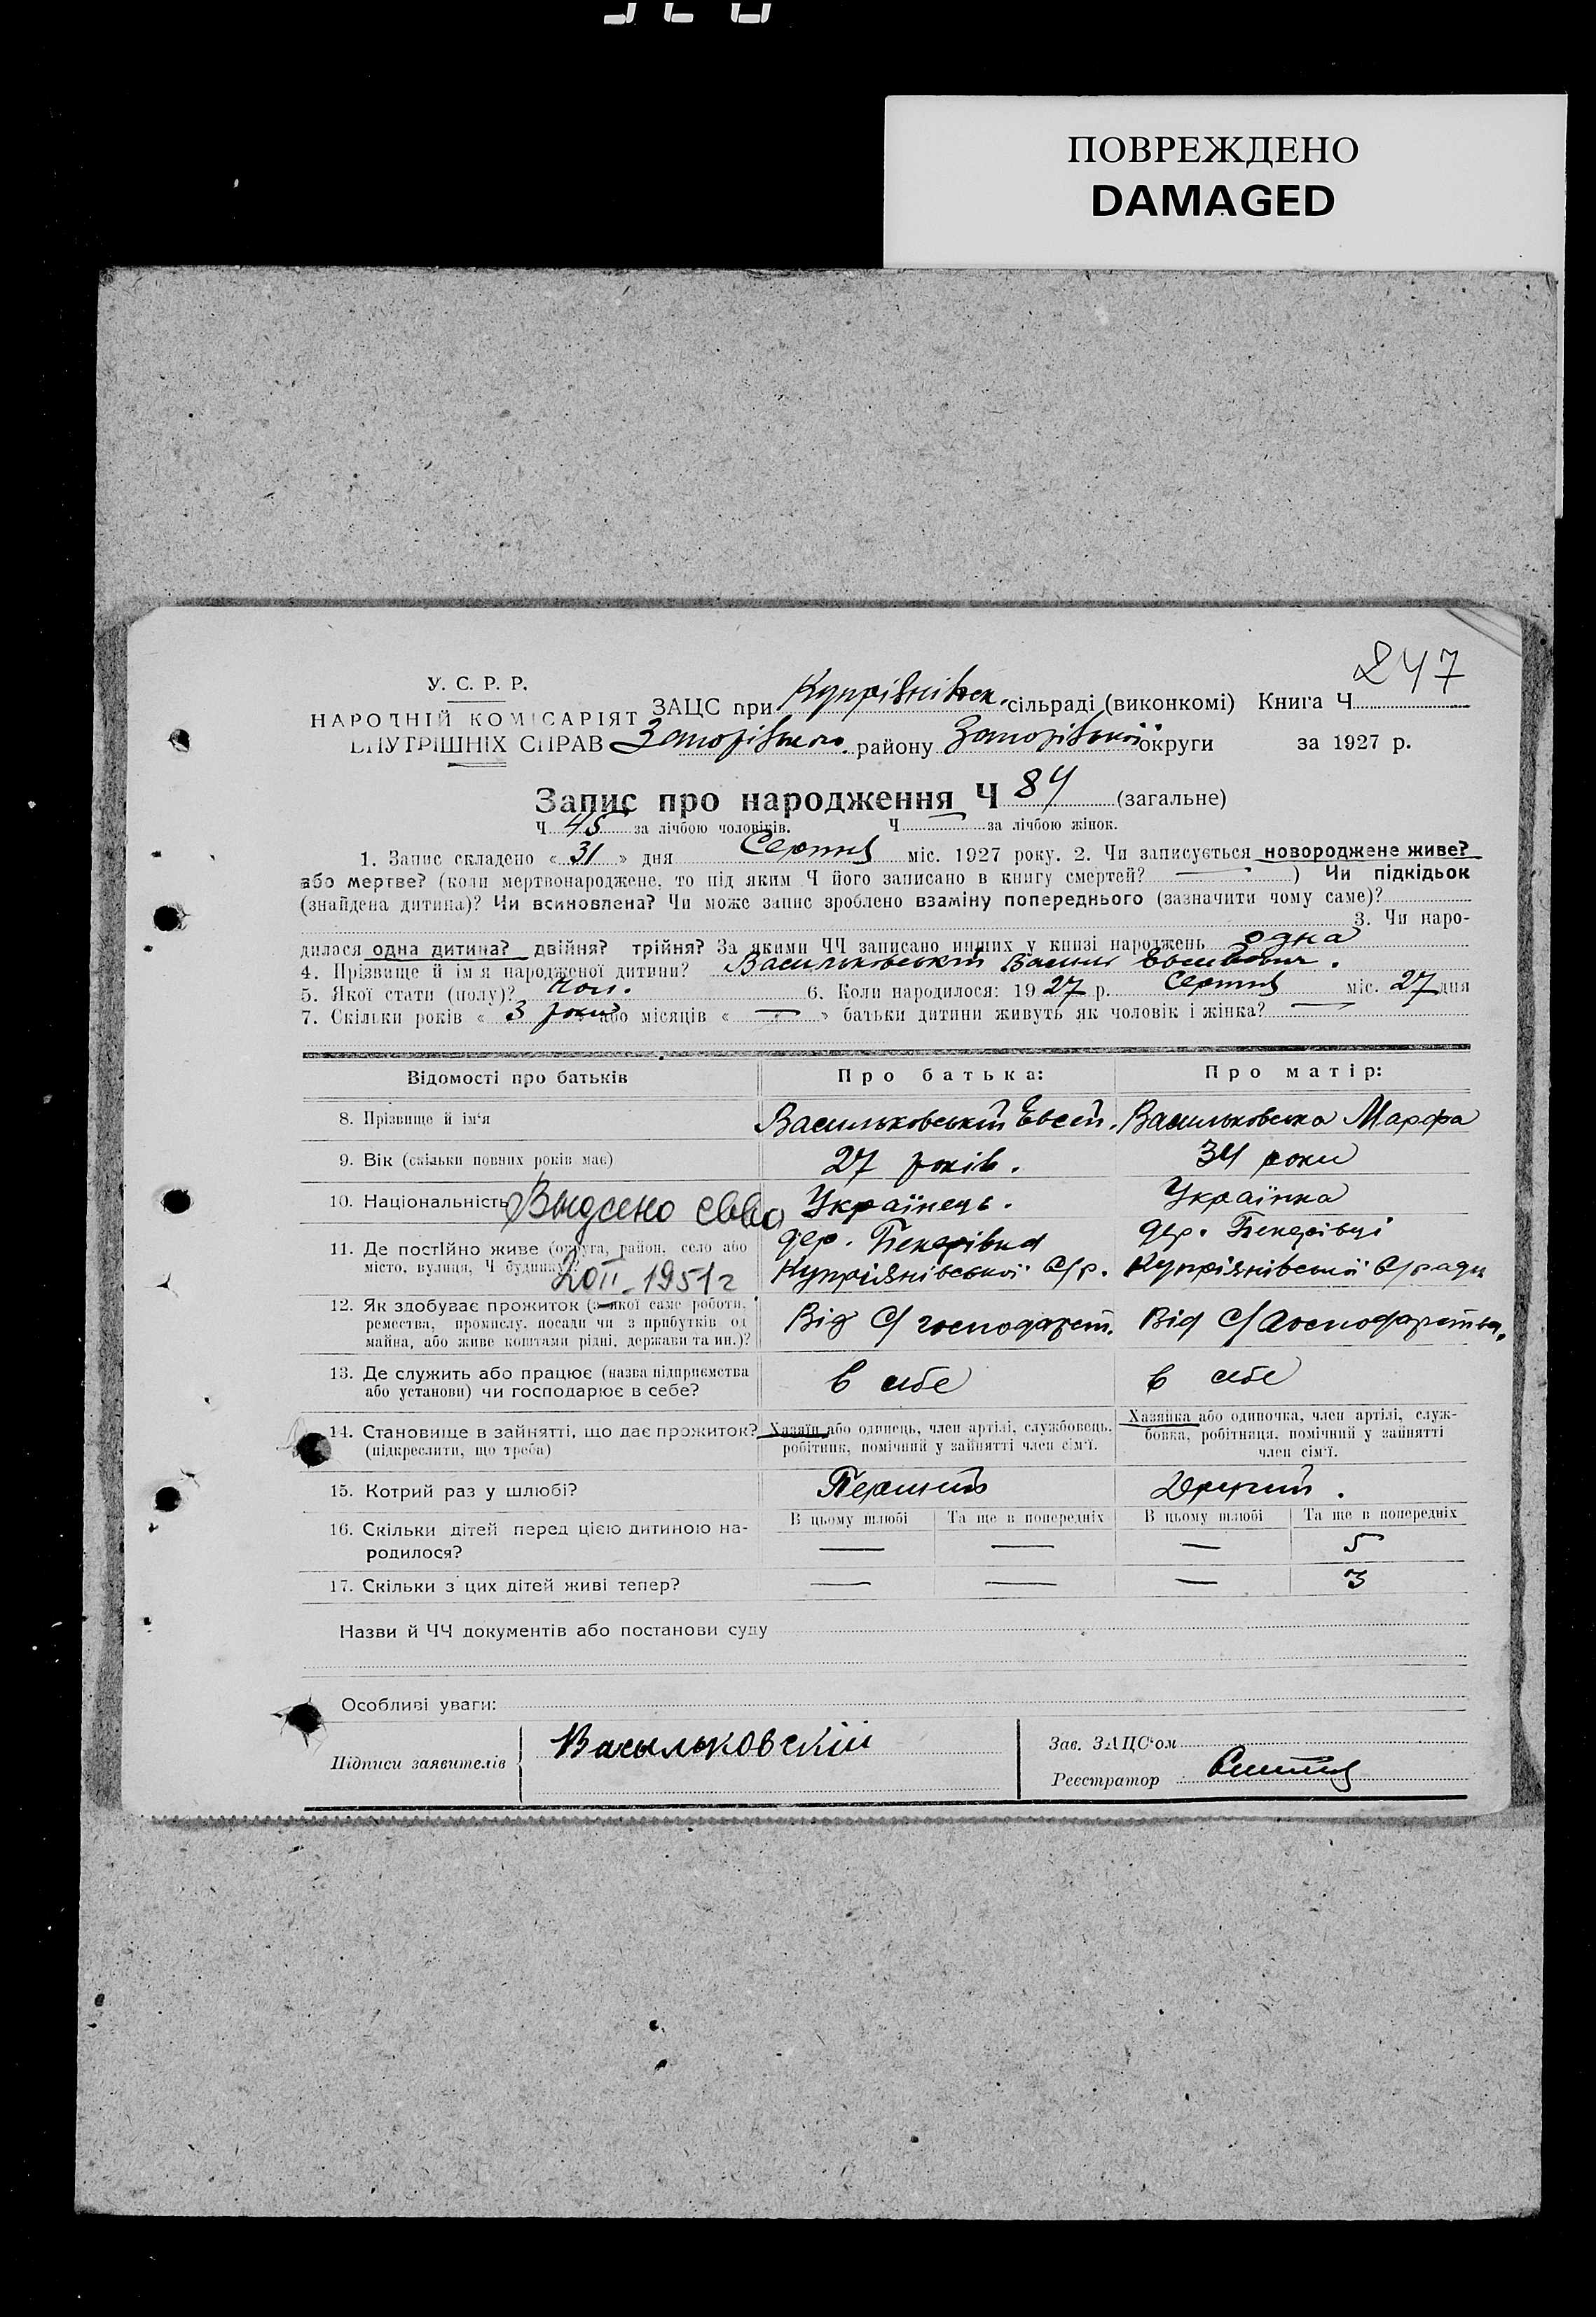 ПОВРЕЖДЕНО
DAMAGED
247
У. С. Р. Р.
НАРОДНІЙ КОМІСАРІЯТ
ВНУТРІШНІХ СПРАВ
ЗАЦС при Купріянівськ. сільраді (виконкомі) Книга Ч
Запорізького району Запорізької округи за 1927 р.
Запис про народження Ч 84 (загальне)
Ч 45 за лічбою чоловіків. Ч — за лічбою жінок.
1. Запис складено « 31 » дня Серпня міс. 1927 року. 2. Чи записується новороджене живе?
або мертве? (коли мертвонароджене, то під яким Ч його записано в книгу смертей? — ) Чи підкідьок
(знайдена дитина)? Чи всиновлена? Чи може запис зроблено взаміну попереднього (зазначити чому саме)?
3. Чи наро-
дилася одна дитина? двійня? трійня? За якими ЧЧ записано инших у книзі народжень одна
4. Прізвище й ім'я народженої дитини? Васильковський Василь
5. Якої стати (полу)? чол. 6. Коли народилося: 1927 р. Серпня міс. 27 дня
7. Скільки років « 3 роки або місяців « — » батьки дитини живуть як чоловік і жінка? —
Відомості про батьків Про батька: Про матір:
8. Прізвище й ім'я Васильковський Евсей. Васильковська Марфа
9. Вік (скільки повних років має) 27 років. 34 роки
10. Національність Українець. Українка
Выдсено
11. Де постійно живе (округа, район, село або
місто, вулиця, Ч будинку)?
дер.
Купріянівської С/р.
дер.
Купріянівської С/ради
20 II 1951 г
12. Як здобуває прожиток (з якої саме роботи,
ремества, промислу, посади чи з прибутків од
майна, або живе коштами рідні, держави та ин.)?
Від С/господарст. Від С/господарства.
13. Де служить або працює (назва підприємства
або установи) чи господарює в себе?
в себе в себе
14. Становище в зайнятті, що дає прожиток?
(підкреслити, що треба)
Хазяїн або одинець, член артілі, службовець,
робітник, помічний у зайнятті член сім'ї.
Хазяйка або одиночка, член артілі, служ-
бовка, робітниця, помічний у зайнятті
член сім'ї.
15. Котрий раз у шлюбі? Перший Другий.
16. Скільки дітей перед цією дитиною на-
родилося?
В цьому шлюбі Та ще в попередніх В цьому шлюбі Та ще в попередніх
— — — 5
17. Скільки з цих дітей живі тепер? — — — 3
Назви й ЧЧ документів або постанови суду
Особливі уваги:
Підписи заявителів Васыльковскій
Зав. ЗАЦС'ом
Реєстратор